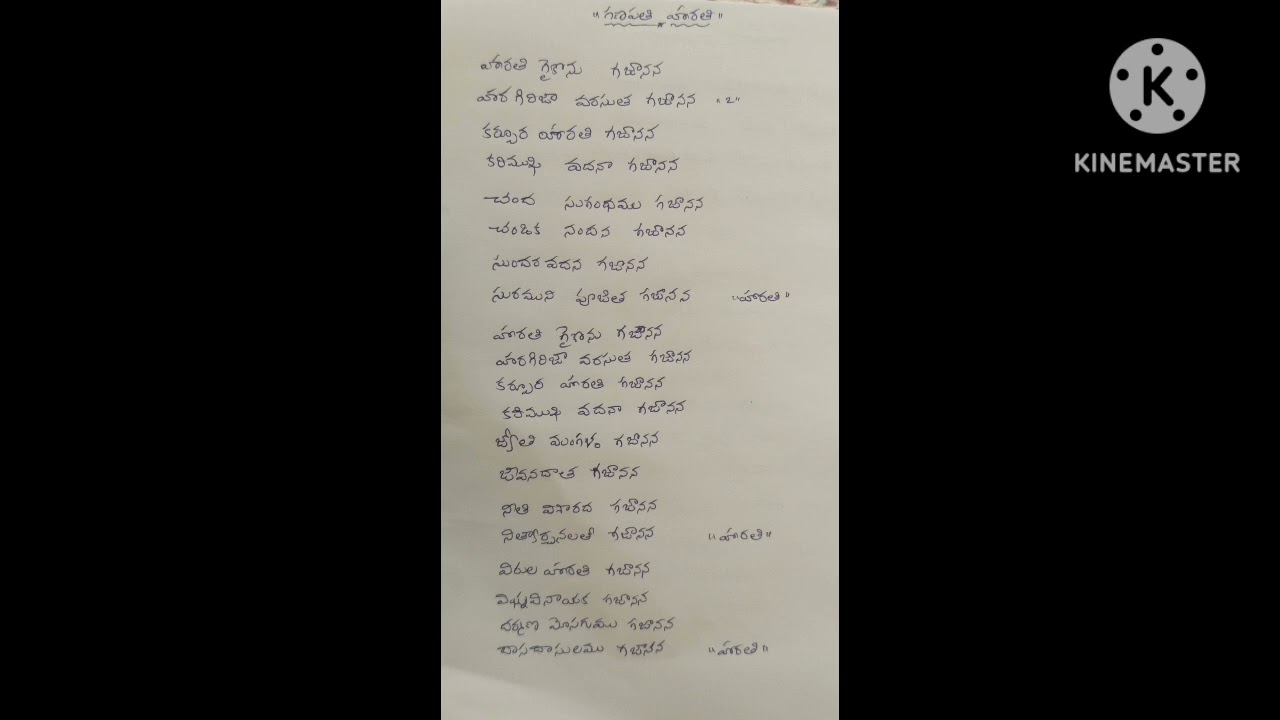 "గణపతి హారతి"
హారతి గైకొను గజానన
హరగిరిజా వరసుత గజానన "2"
కర్పూర హారతి గజానన
కరిముఖ వదనా గజానన
చంద సుగంధము గజానన
చండిక నందన గజానన
సుందర వదన గజానన
సురముని పూజిత గజానన "హారతి"
హారతి గైకొను గజానన
హరగిరిజా వరసుత గజానన
కర్పూర హారతి గజానన
కరిముఖ వదనా గజానన
జ్యోతి మంగళం గజానన
జీవనదాత గజానన
నీతి విశారద గజానన
నితకీర్తనలతో గజానన "హారతి"
విరుల హారతి గజానన
విఘ్నవినాయక గజానన
దర్శణ మొసగుము గజానన
దాసదాసులము గజానన "హారతి"
K
KINEMASTER